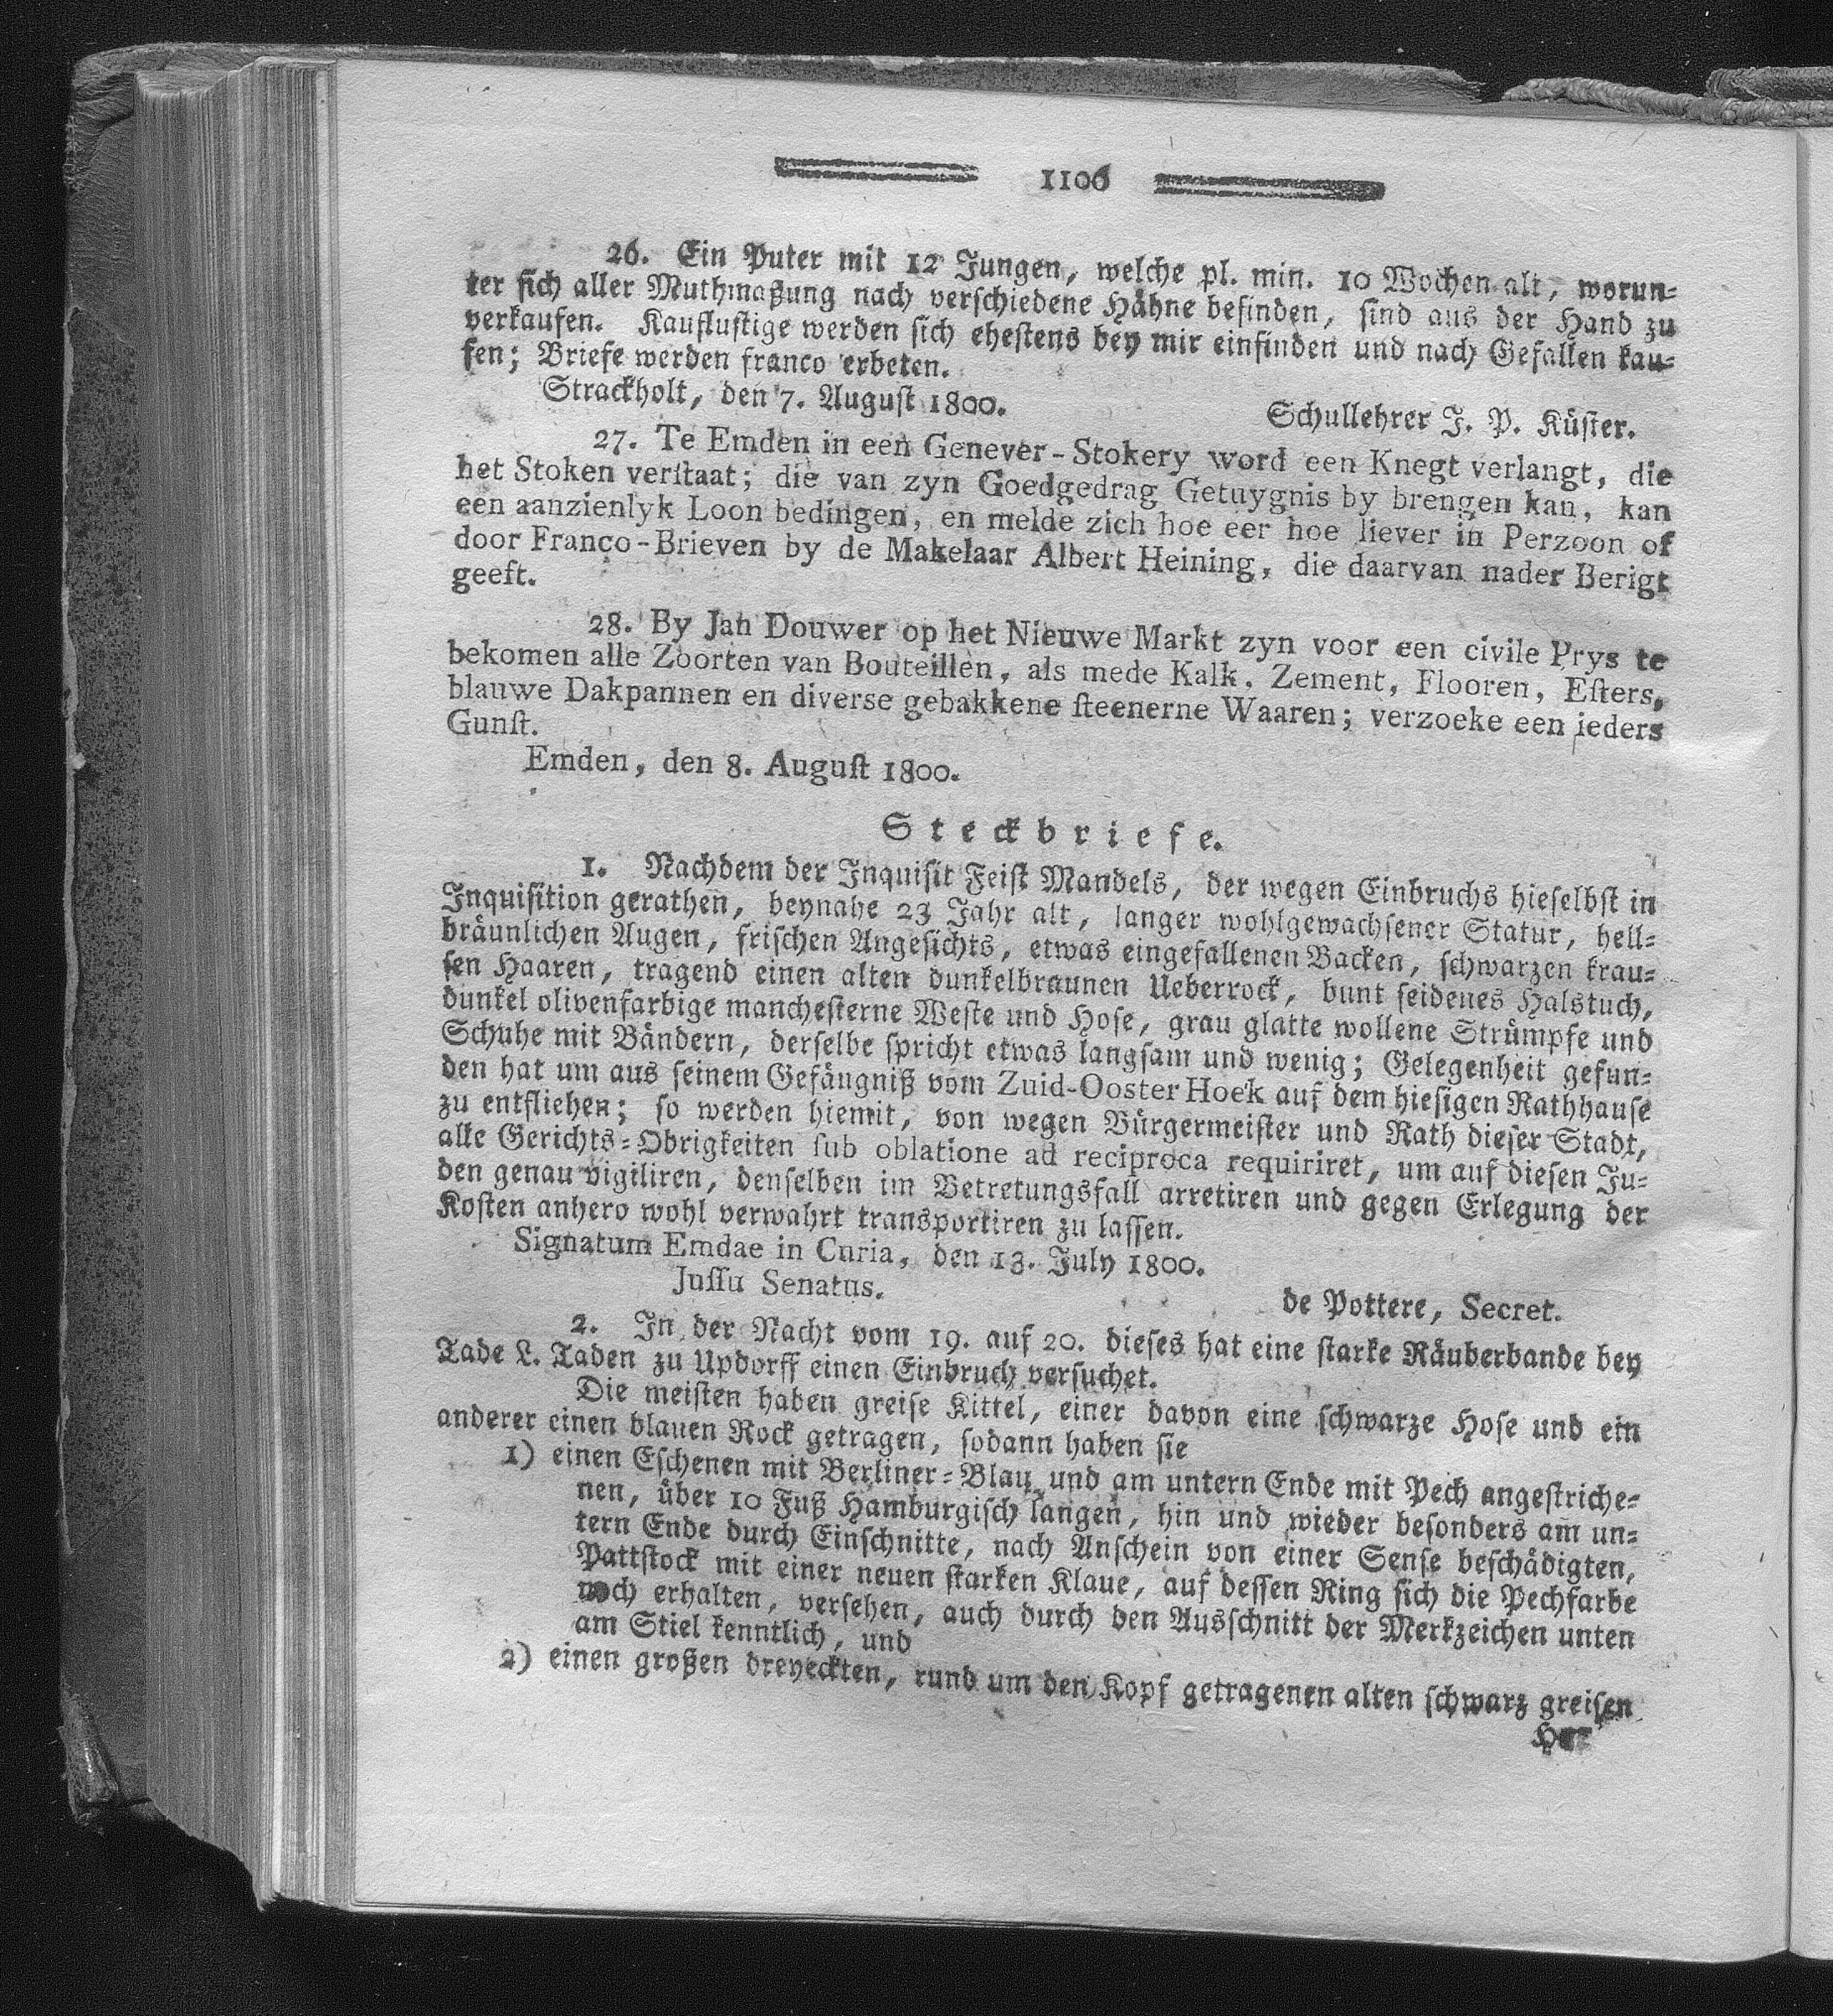 1106
26. Ein Puter mit 12 Jungen, welche pl. min. 10 Wochen alt, worun-
ter sich aller Muthmaßung nach verschiedene Hähne befinden, sind aus der Hand zu
verkaufen. Kauflustige werden sich ehestens bey mir einfinden und nach Gefallen kau-
fen; Briefe werden franco erbeten.
Strackholt, den 7. August 1800.
Schullehrer J. P. Küster.
27. Te Emden in een Genever-Stokery word een Knegt verlangt, die
het Stoken verstaat; die van zyn Goedgedrag Getuygnis by brengen kan, kan
een aanzienlyk Loon bedingen, en melde zich hoe eer hoe liever in Perzoon of
door Franco-Brieven by de Makelaar Albert Heining, die daarvan nader Berigt
geeft.
28. By Jan Douwer op het Nieuwe Markt zyn voor een civile Prys te
bekomen alle Zoorten van Bouteillen, als mede Kalk, Zement, Flooren, Esters,
blauwe Dakpannen en diverse gebakkene steenerne Waaren; verzoeke een ieders
Gunst.
Emden, den 8. August 1800.
Steckbriefe.
1. Nachdem der Inquisit Feist Mandels, der wegen Einbruchs hieselbst in
Inquisition gerathen, beynahe 23 Jahr alt, langer wohlgewachsener Statur, hell-
bräunlichen Augen, frischen Angesichts, etwas eingefallenen Backen, schwarzen krau-
sen Haaren, tragend einen alten dunkelbraunen Ueberrock, bunt seidenes Halstuch,
dunkel olivenfarbige manchesterne Weste und Hose, grau glatte wollene Strümpfe und
Schuhe mit Bändern, derselbe spricht etwas langsam und wenig; Gelegenheit gefun-
den hat um aus seinem Gefängniß vom Zuid-Ooster Hoek auf dem hiesigen Rathhause
zu entfliehen; so werden hiemit, von wegen Bürgermeister und Rath dieser Stadt,
alle Gerichts-Obrigkeiten sub oblatione ad reciproca requiriret, um auf diesen Ju-
den genau vigiliren, denselben im Betretungsfall arretiren und gegen Erlegung der
Kosten anhero wohl verwahrt transportiren zu lassen.
Signatum Emdae in Curia, den 13. July 1800.
Jussu Senatus.
de Pottere, Secret.
2. In der Nacht vom 19. auf 20. dieses hat eine starke Räuberbande bey
Tade L. Taden zu Updorff einen Einbruch versuchet.
Die meisten haben greise Kittel, einer davon eine schwarze Hose und ein
anderer einen blauen Rock getragen, sodann haben sie
1) einen Eschenen mit Berliner-Blau und am untern Ende mit Pech angestriche-
nen, über 10 Fuß Hamburgisch langen, hin und wieder besonders am un-
tern Ende durch Einschnitte, nach Anschein von einer Sense beschädigten,
Pattstock mit einer neuen starken Klaue, auf dessen Ring sich die Pechfarbe
noch erhalten, versehen, auch durch den Ausschnitt der Merkzeichen unten
am Stiel kenntlich, und
2) einen großen dreyeckten, rund um den Kopf getragenen alten schwarz greisen